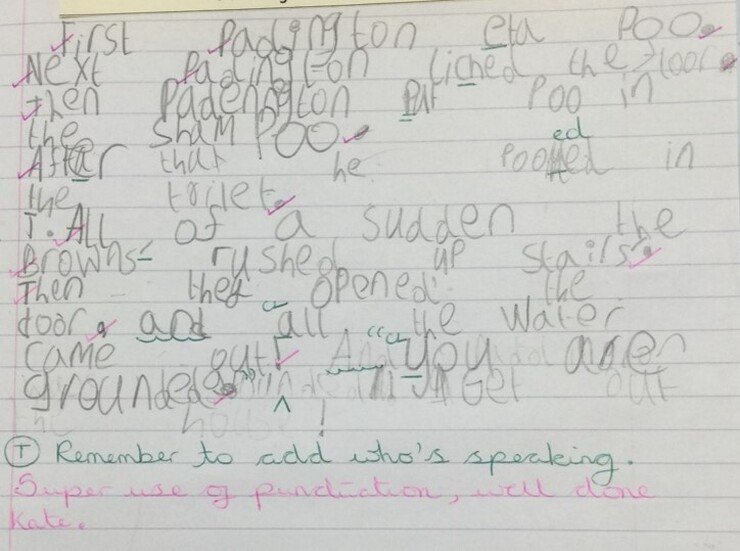 First Padington eta Poo.
Next Padington liched the floor.
then Padenngton Put Poo in
the sham Poo.
After that he pooed in
the toilet.
T. All of a sudden the
Browns rushed up stairs.
Then they opened the
door, and all the water
came out! "you aren
grounded." Get out
!
T Remember to add who's speaking.
Super use of punctuation, well done
Kate.